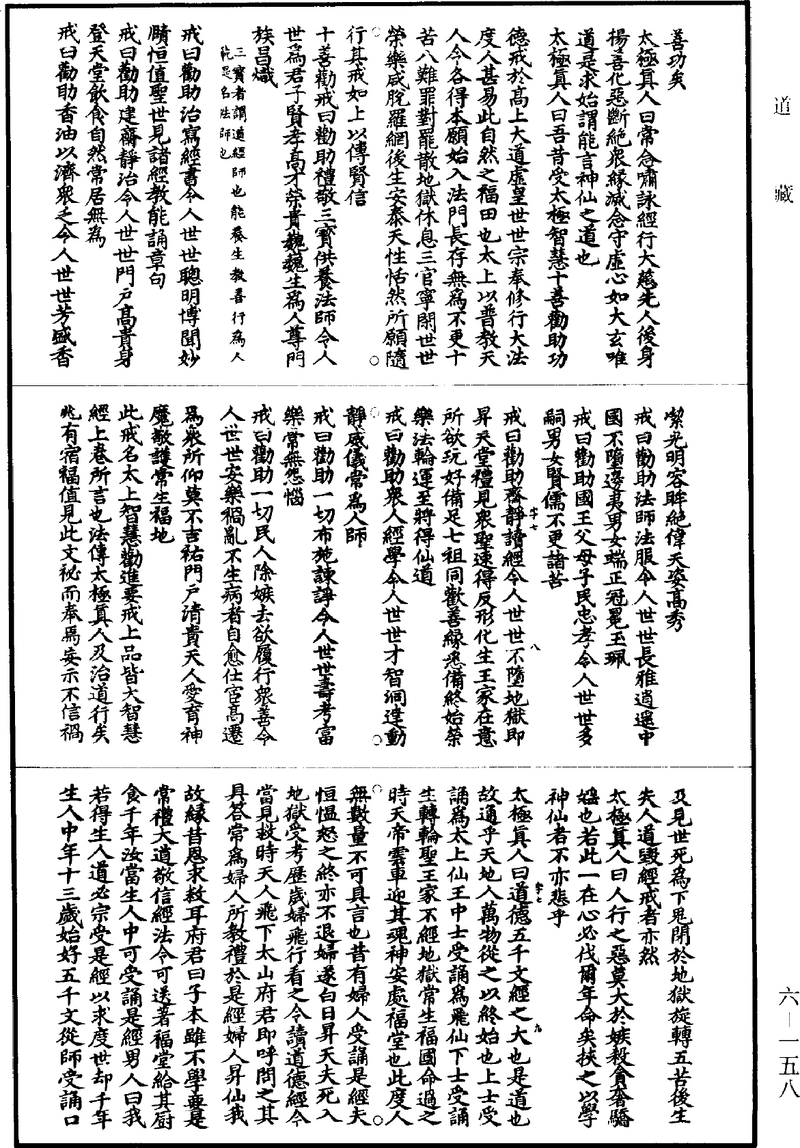 道藏
善功矣
太極真人曰常念嘯詠經行大慈先人後身
楊善化惡斷絕衆緣滅念守虛心如大玄唯
道是求始謂能言神仙之道也
太極真人曰吾昔受太極智慧十善勸助功
德戒於高上大道虛皇世世宗奉修行大法
度人甚易此自然之福田也太上以普教天
人令各得本願始入法門長存無為不更十
苦八難罪對罷散地獄休息三官寧閑世世
榮樂咸脫羅網後生安泰天性恬然所願隨
行其戒如上以傳賢信
十善勸戒曰勸助禮敬三寶供養法師令人
世為君子賢孝高才榮貴巍巍生為人尊門
族昌熾
三寶者謂道經師也能養生教善行為人
範是名法師也
戒曰勸助治寫經書令人世世聰明博聞妙
賾恒值聖世見諸經教能誦章句
戒曰勸助建齋靜治令人世世門戶高貴身
登天堂飲食自然常居無為
戒曰勸助香油以濟衆乏令人世世芳盛香
潔光明容眸絕偉天姿高秀
戒曰勸助法師法服令人世世長雅逍遥中
國不墮邊夷男女端正冠冕玉珮
戒曰勸助國王父母子民忠孝令人世世多
嗣男女賢儒不更諸苦
戒曰勸助齋靜讀經令人世世不墮地獄即
昇天堂禮見衆聖速得反形化生王家在意
所欲玩好備足七祖同歡善緣悉備終始榮
樂法輪運至將得仙道
戒曰勸助衆人經學令人世世才智洞達動
靜威儀常為人師
戒曰勸助一切布施諫諍令人世世壽考富
樂常無怨惱
戒曰勸助一切民人除嫉去欲履行衆善令
人世世安樂禍亂不生病者自愈仕宦高遷
為衆所仰莫不吉祐門戶清貴天人愛育神
魔敬護常生福地
此戒名太上智慧勸進要戒上品皆大智慧
經上卷所言也法傳太極真人及治道行矣
兆有宿福值見此文祕而奉焉妄示不信禍
及見世死為下鬼閉於地獄旋轉五苦後生
失人道毀經戒者亦然
太極真人曰人行之惡莫大於嫉殺貪奢驕
婬也若此一在心必伐爾年命矣挾之以學
神仙者不亦悲乎
太極真人曰道德五千文經之大也是道也
故通乎天地人萬物從之以終始也上士受
誦為太上仙王中士受誦為飛仙下士受誦
生轉輪聖王家不經地獄常生福國命過之
時天帝雲車迎其魂神安處福堂也此度人
無數量不可具言也昔有婦人受誦是經夫
恒愠怒之終亦不退婦遂白日昇天夫死入
地獄受考歷歲婦飛行看之令讀道德經今
當見救時天人飛下太山府君即呼問之其
具答常為婦人所教禮於是經婦人昇仙我
故緣昔恩求救耳府君曰子本雖不學要是
常禮大道敬信經法令可送著福堂給其厨
食千年汝當生人中可受誦是經男人曰我
若得生人道必宗受是經以求度世却千年
生人中年十三歲始好五千文從師受誦口
六—一五八